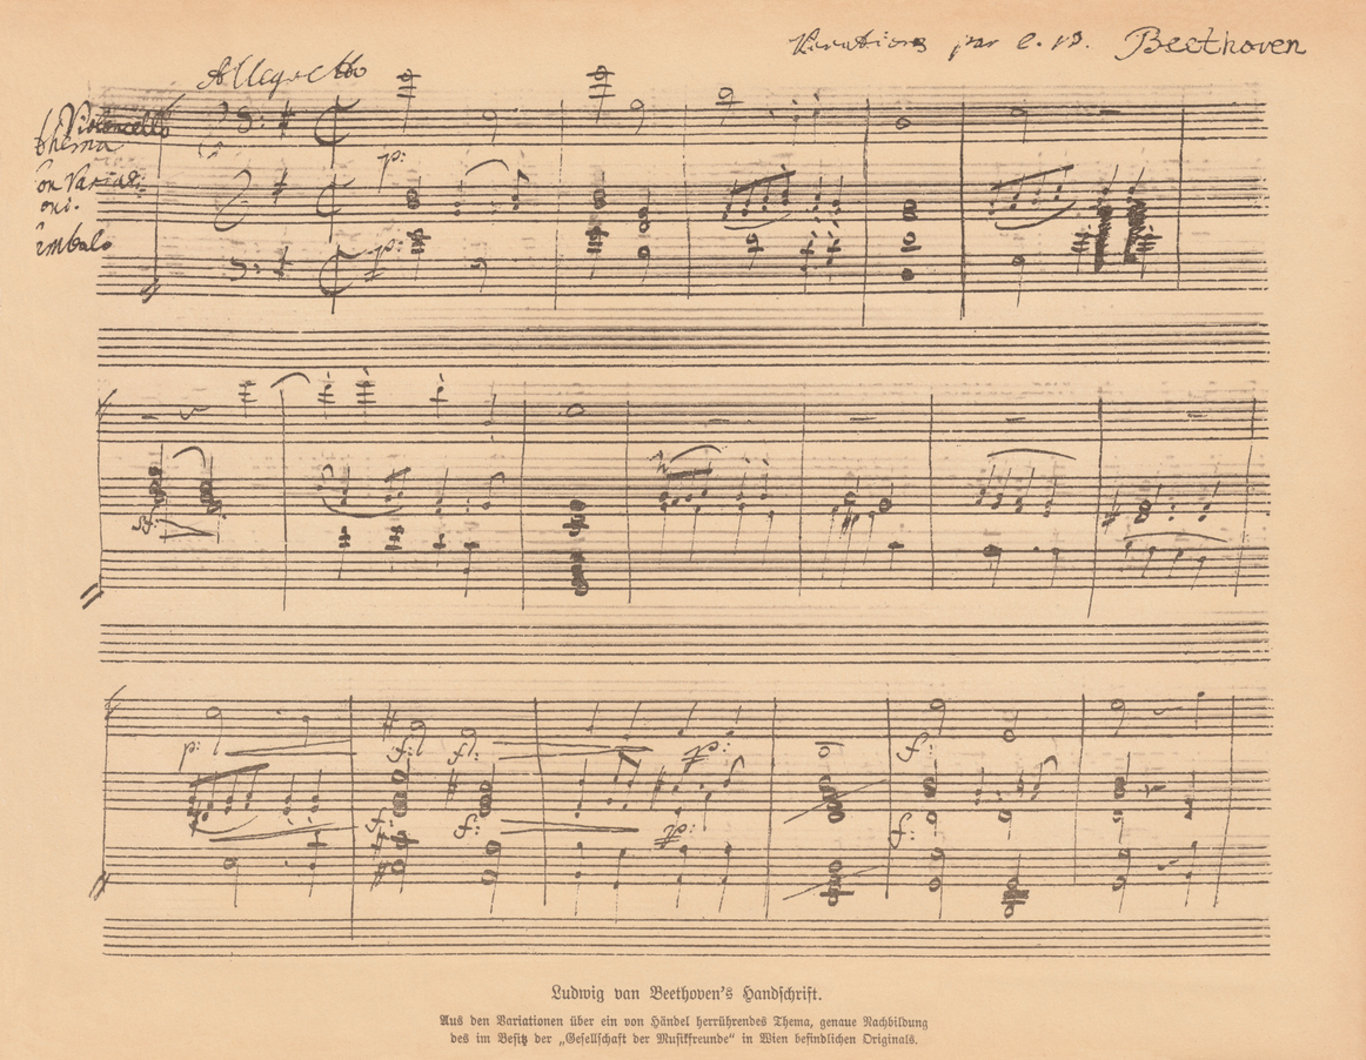 Variations par L. v. Beethoven
Allegretto
Violoncello
thema
on Variati
oni.
imbalo
p:
p:
sf:
p:
f: f: p:
f: f: p:
f:
f:
Ludwig van Beethoven's Handschrift.
Aus den Variationen über ein von Händel herrührendes Thema, genaue Nachbildung
des im Besitz der „Gesellschaft der Musikfreunde" in Wien befindlichen Originals.